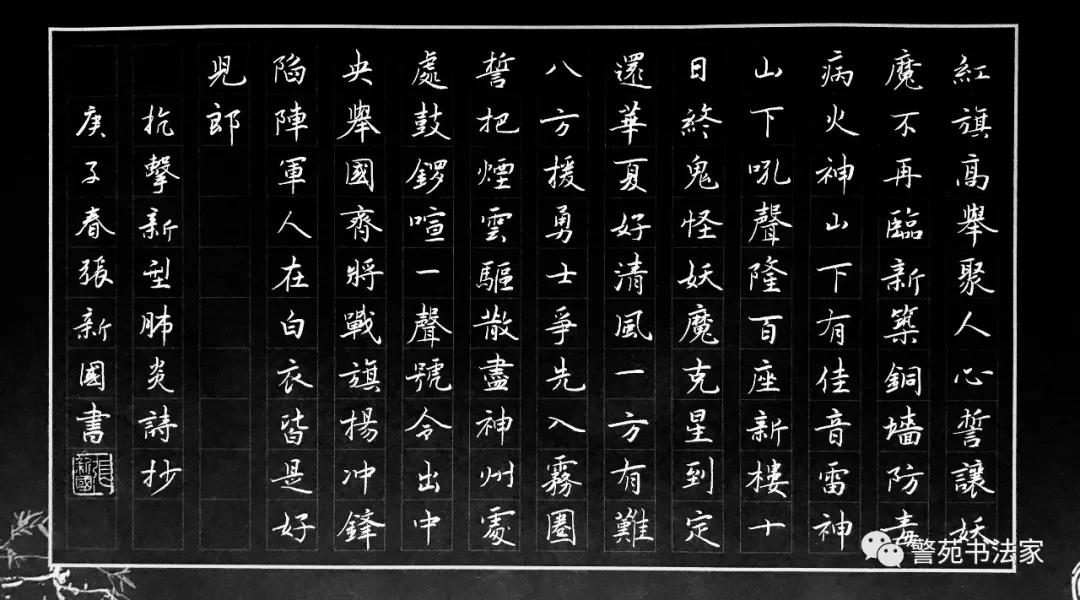 紅旗高舉聚人心誓讓妖
魔不再臨新築銅墻防毒
病火神山下有佳音雷神
山下吼聲隆百座新樓十
日終鬼怪妖魔克星到定
還華夏好清風一方有難
八方援勇士爭先入霧圈
誓把煙雲驅散盡神州處
處鼓鑼喧一聲號令出中
央舉國齊將戰旗揚冲鋒
陷陣軍人在白衣皆是好
兒郎
抗擊新型肺炎詩抄
庚子春張新國書
張新國
警苑书法家